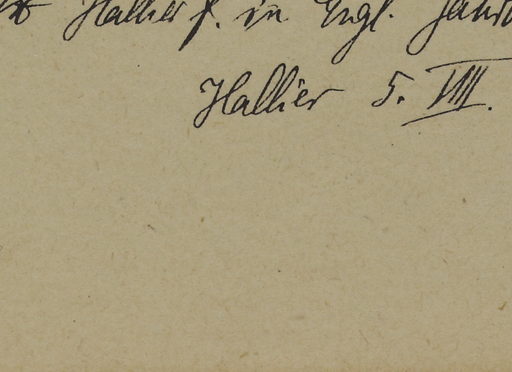 Hallier f. in Engl. Jahrb
Hallier 5. VIII.